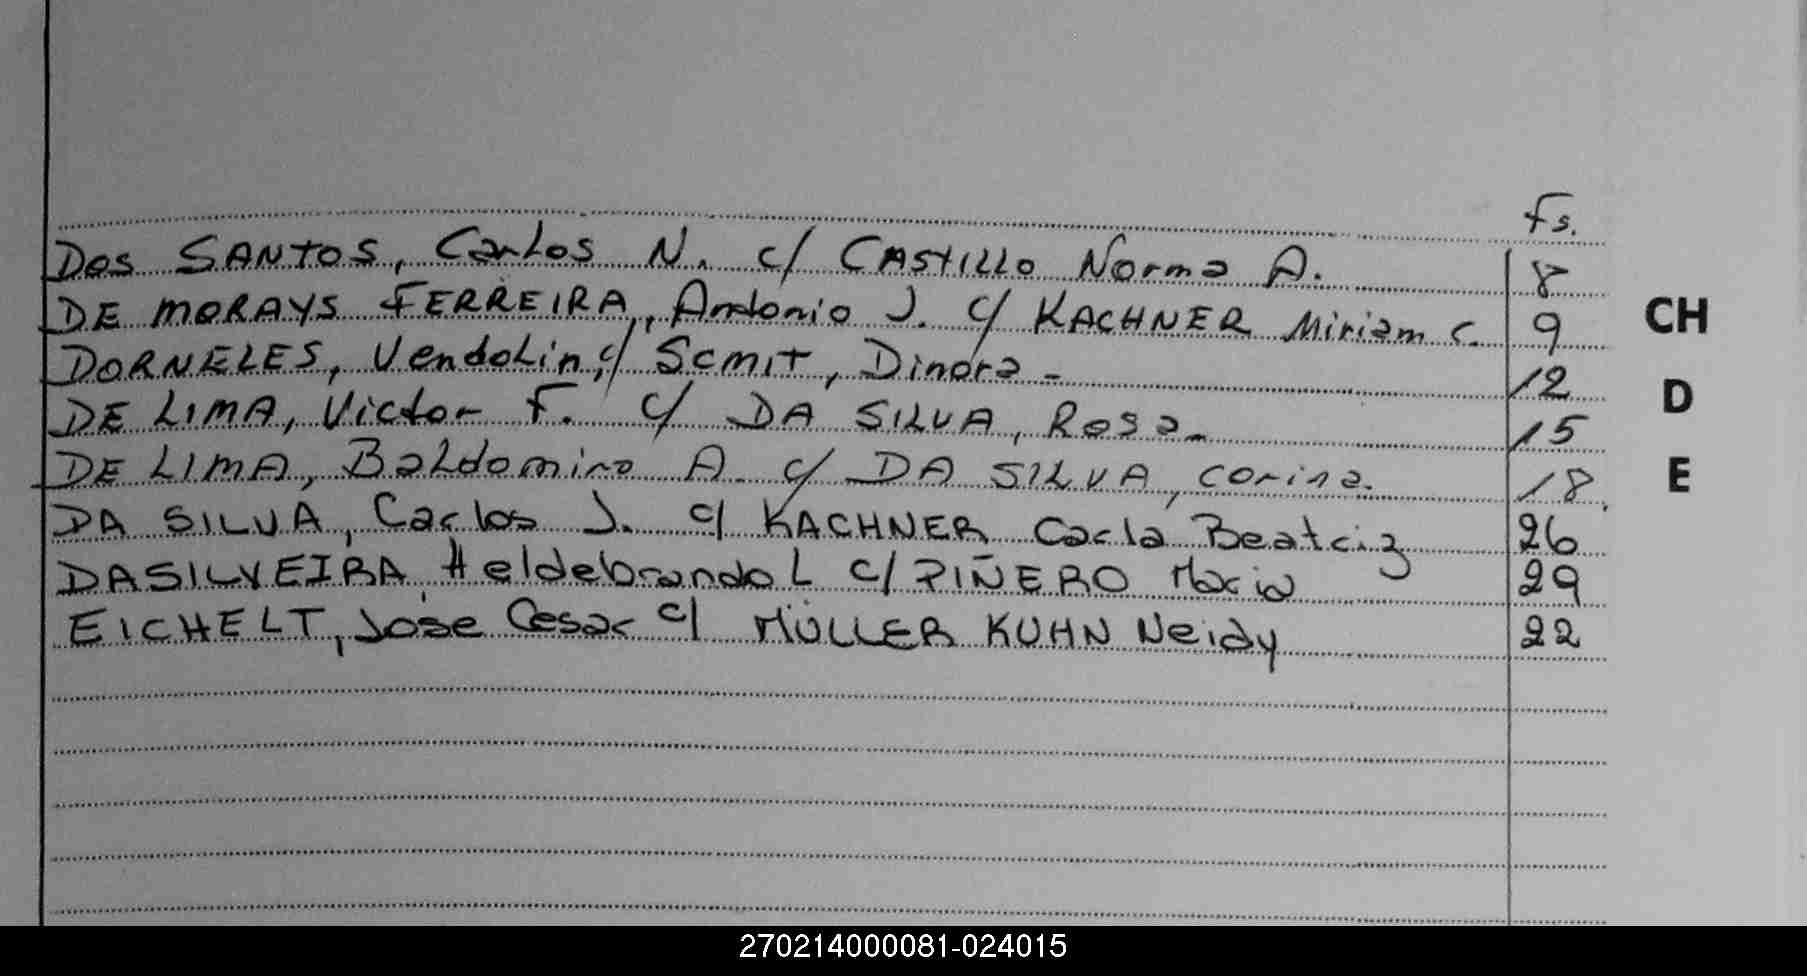 Fs.
Dos SANTOS, Carlos N. c/ CASTILLO Norma A. 8
DE MORAYS FERREIRA, Antonio J. c/ KACHNER Miriam C. 9
DORNELES, Vendolin, c/ SCMIT, Dinora - 12
DE LIMA, Victor F. c/ DA SILVA, Rosa - 15
DE LIMA, Baldomiro A. c/ DA SILVA, Corina. 18
DA SILVA, Carlos J. c/ KACHNER Carla Beatriz 26
DASILVEIRA, Heldebrando L c/ PIÑERO Maria 29
EICHELT, Jose Cesar c/ MÜLLER KUHN Neidy 22
CH
D
E
270214000081-024015